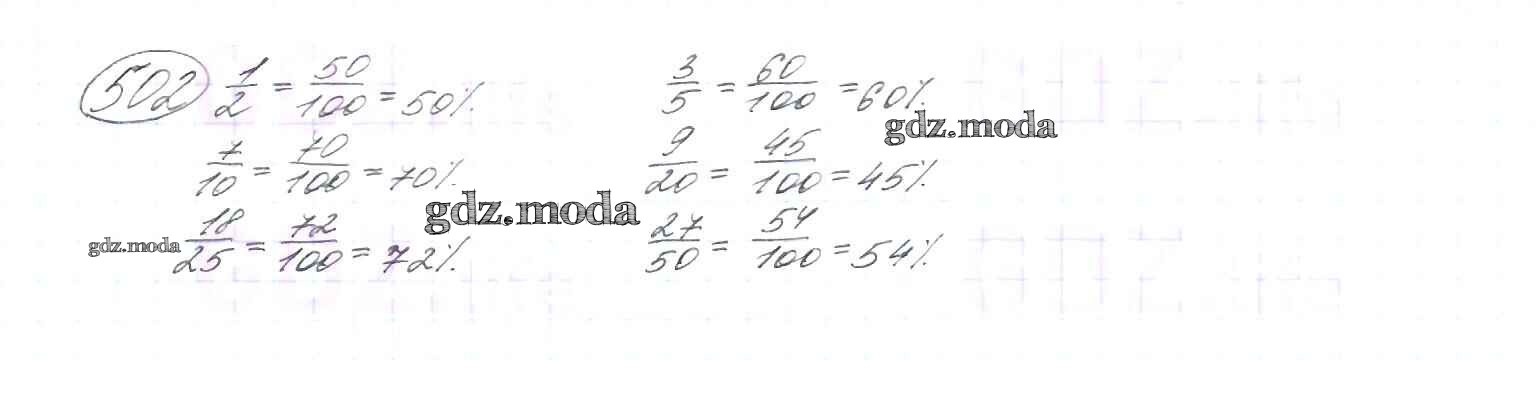 502 1/2 = 50/100 = 50% 3/5 = 60/100 = 60%
gdz.moda
7/10 = 70/100 = 70% 9/20 = 45/100 = 45%
gdz.moda
18/25 = 72/100 = 72% 27/50 = 54/100 = 54%
gdz.moda